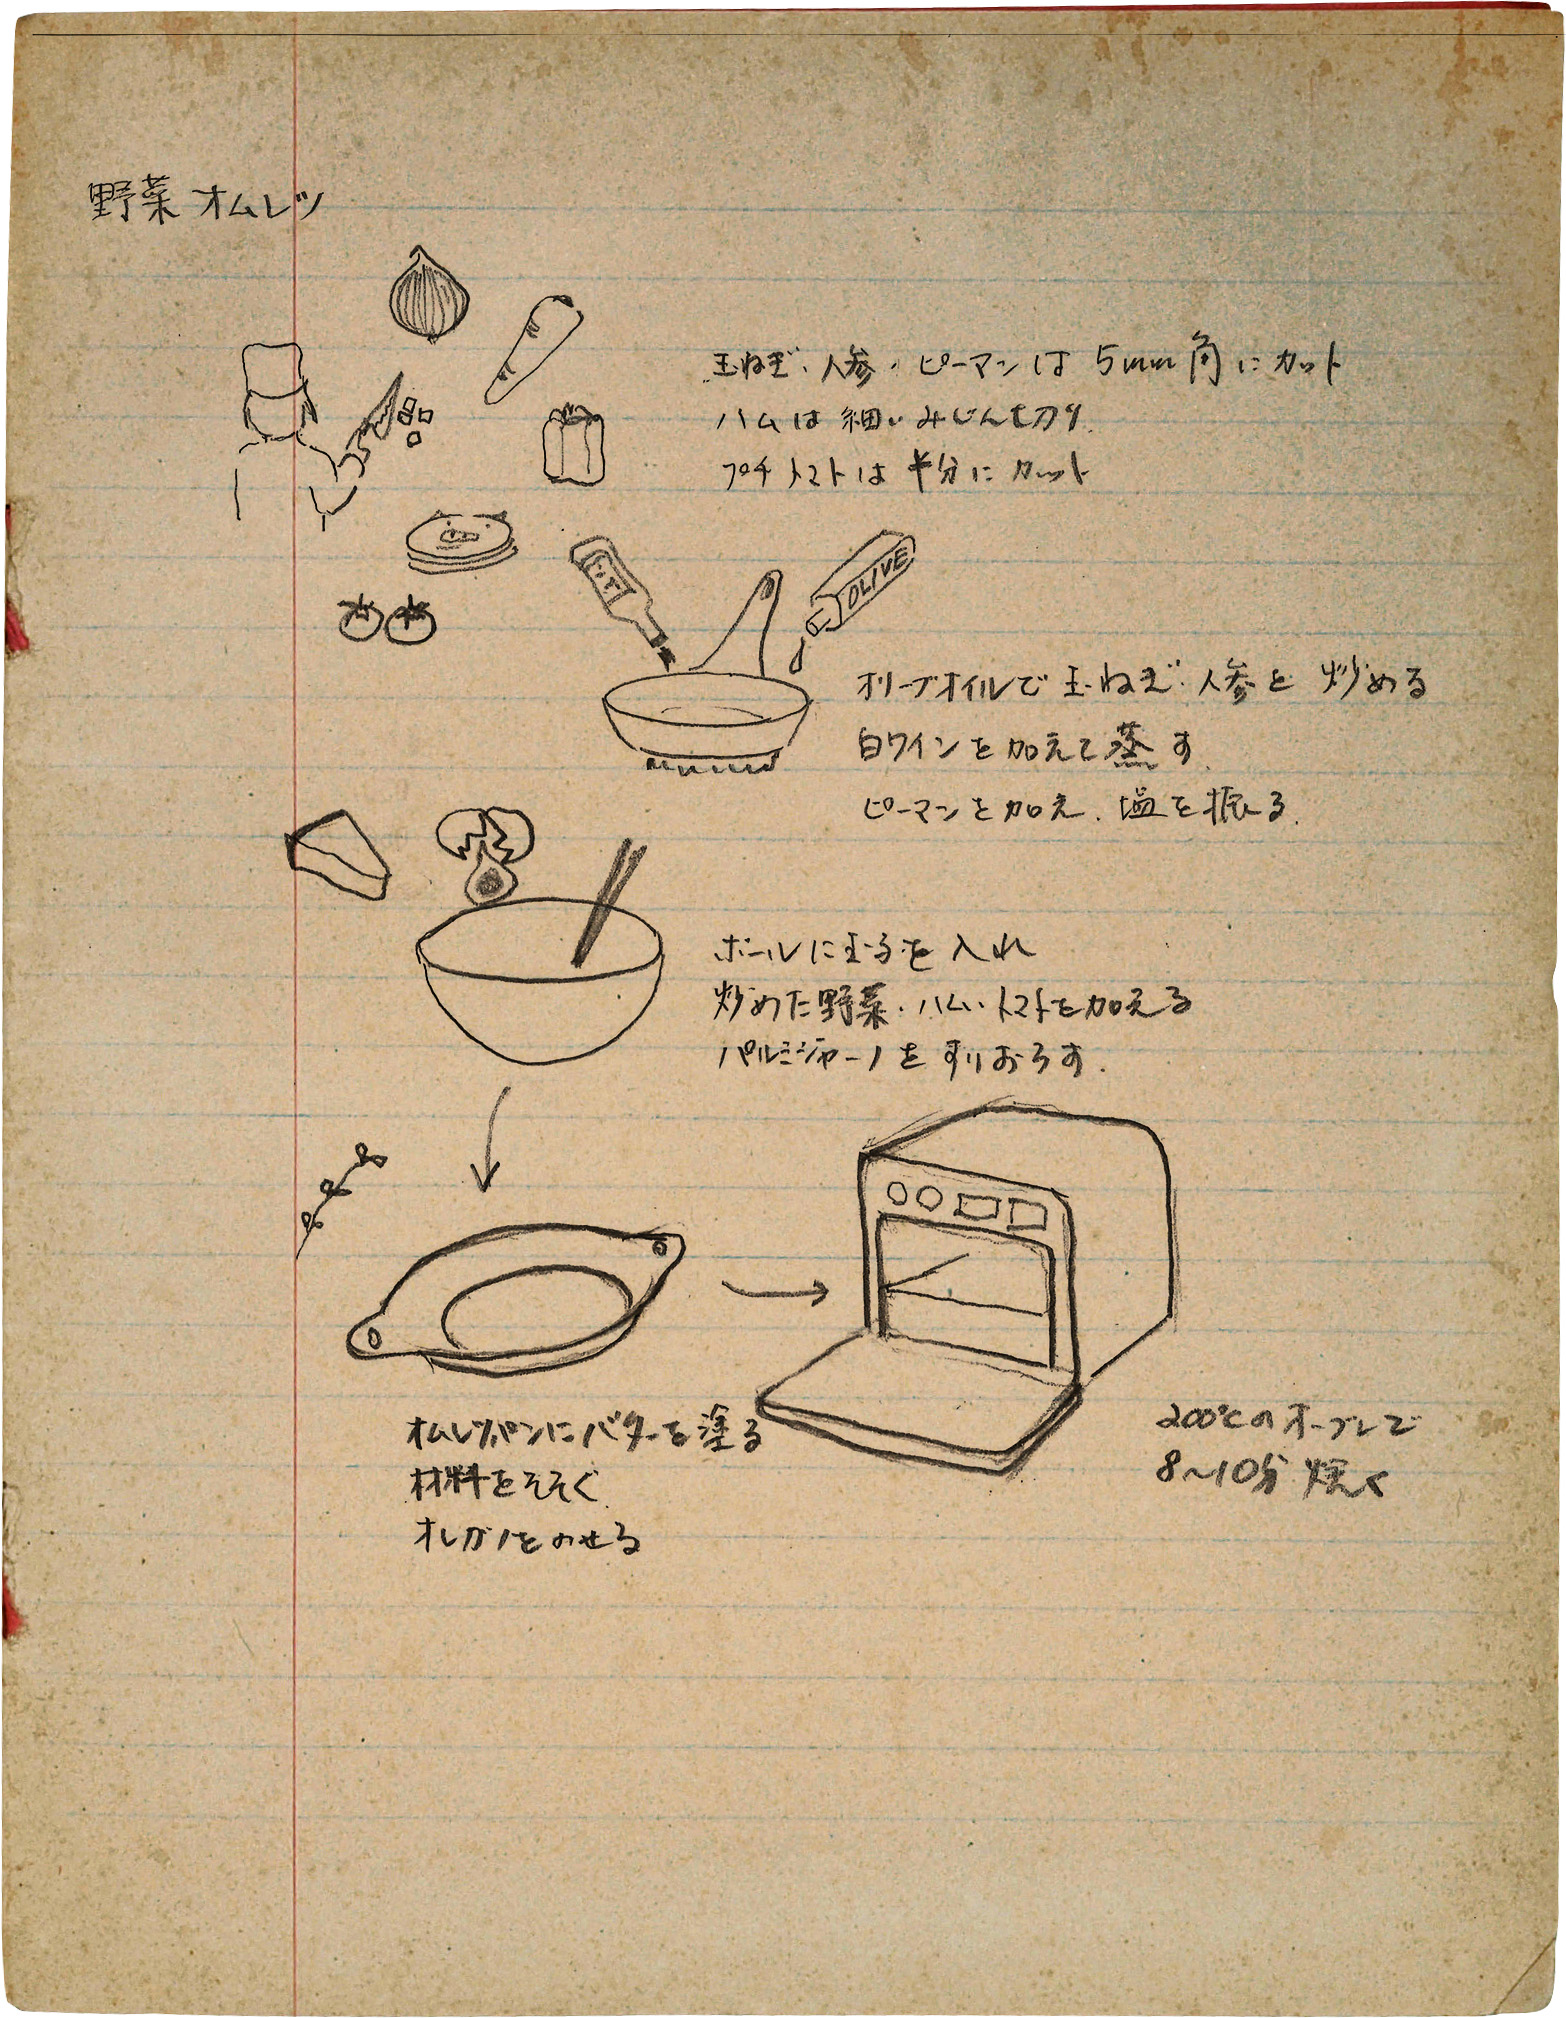 野菜オムレツ
玉ねぎ・人参・ピーマンは 5mm角にカット
ハムは細いみじん切り
プチトマトは半分にカット
OLIVE
オリーブオイルで玉ねぎ・人参を炒める
白ワインを加えて蒸す
ピーマンを加え、塩を振る。
ボールに玉子を入れ
炒めた野菜・ハム・トマトを加える
パルミジャーノをすりおろす.
オムレツパンにバターを塗る
材料をそそぐ
オレガノをのせる
200℃のオーブンで
8〜10分焼く